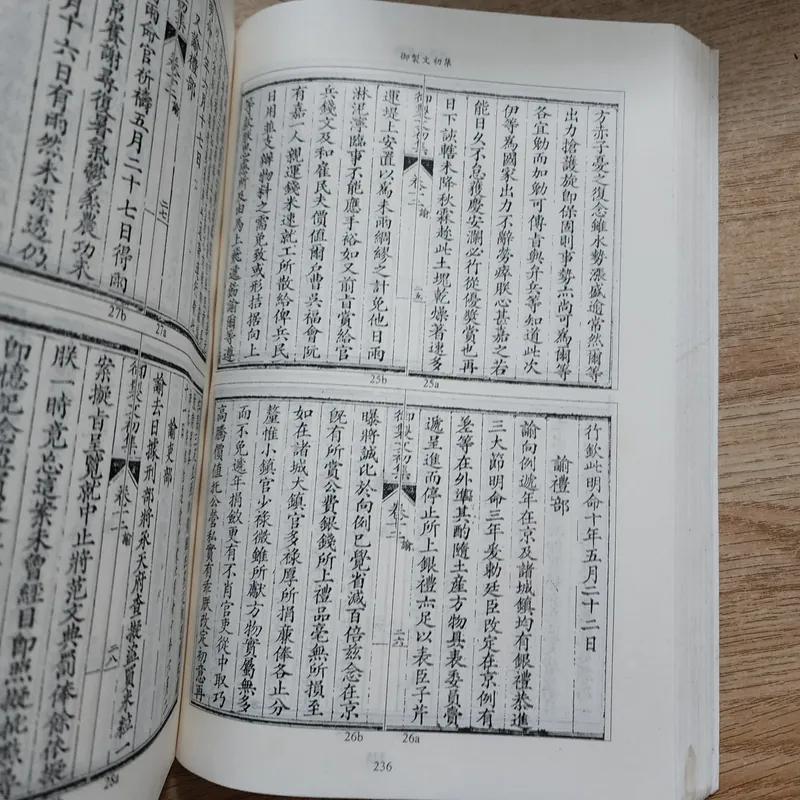 御製文初集
方赤子憂之復念雖水勢漲盛逾常然爾等
出力搶護旋即保固則事勢亦尚可為爾等
各宜勉而加勉可傳旨與弁兵等知道此次
伊等為國家出力不辭勞瘁朕心甚嘉之若
能日久不怠獲慶安瀾必行從優獎賞也再
日下該轄未降秋霖趁此土塊乾燥著速多
御製文初集 卷十二 諭 二五
運堤上安置以為未雨綢繆之計免他日雨
淋泥濘臨事不能應手裕如又前旨賞給官
兵錢文及和雇民夫價值爾戶曹吳福會阮
有嘉一人親運錢米速就工所散給俾兵民
日用雜支辦物料之需免致或形拮据向上
25b 25a
行欽此明命十年五月二十二日
諭禮部
諭向例遞年在京及諸城鎮均有銀禮恭進
三大節明命三年爰勅廷臣改定在京例有
差等在外準其酌隨土產方物具表委員賫
遞呈進而停止所上銀禮亦足以表臣子芹
御製文初集 卷十二 諭 二六
曝將誠比於向例已覺省減百倍茲念在京
既有所賞公費銀錢所上禮品毫無所損至
如在諸城大鎮官多祿厚所捐廉俸各止分
釐惟小鎮官少祿微雖所獻方物實屬無多
而不免遞年捐斂更有不肖官吏從中取巧
高騰價值托公營私實有乖朕改定初意再
26b 26a
236
二七
雨命官祈禱五月二十七日得雨
月十六日有雨然未深透仍
27b 27a
諭吏部
諭去日據刑部將承天府查擬盜買米粒一
御製文初集 卷十二 諭 二八
案擬旨呈覽就中止將范文典罰俸餘依擬
朕一時竟忘這案未曾經目即照擬批
28a